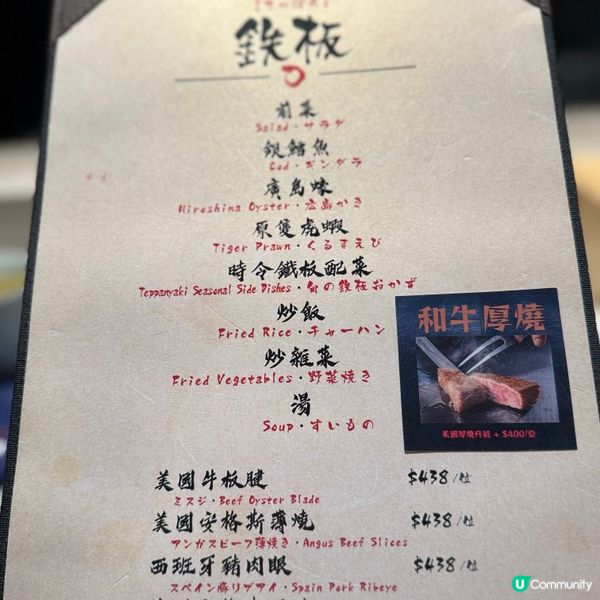 鉄板
前菜
Salad・サラダ
銀鱈魚
Cod・ギンダラ
廣島蠔
Hiroshima Oyster・広島かき
原隻虎蝦
Tiger Prawn・くるまえび
時令鐵板配菜
Teppanyaki Seasonal Side Dishes・旬の鉄板おかず
炒飯
Fried Rice・チャーハン
炒雜菜
Fried Vegetables・野菜焼き
湯
Soup・すいもの
和牛厚燒
美國厚燒升級 + $400/位
美國牛板腱 $438/位
ミスジ・Beef Oyster Blade
美國安格斯薄燒 $438/位
アンガスビーフ薄焼き・Angus Beef Slices
西班牙豬肉眼 $438/位
スペイン豚リブアイ・Spain Pork Ribeye
U Community